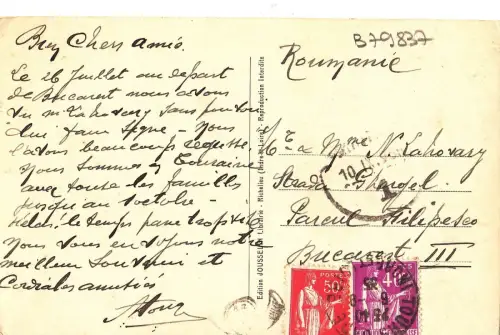 Bien Chers amis.
Le 26 Juillet au départ
de Bucarest nous avons
vu M. Lahovary sans pouvoir
lui faire signe - Nous
l'avons beaucoup regretté.
Nous sommes en Touraine
avec toute les familles
jusqu'au octobre -
Hélas! le temps passe trop vite
Nous vous envoyons notre
meilleur souvenir et
Cordiales amitiés
Edition JOUSSE Librairie - Reproduction Interdite
B79837
Roumanie
Mr & Mme N. Lahovary
Strada
Parcul Filipesco
Bucarest III
50c
40